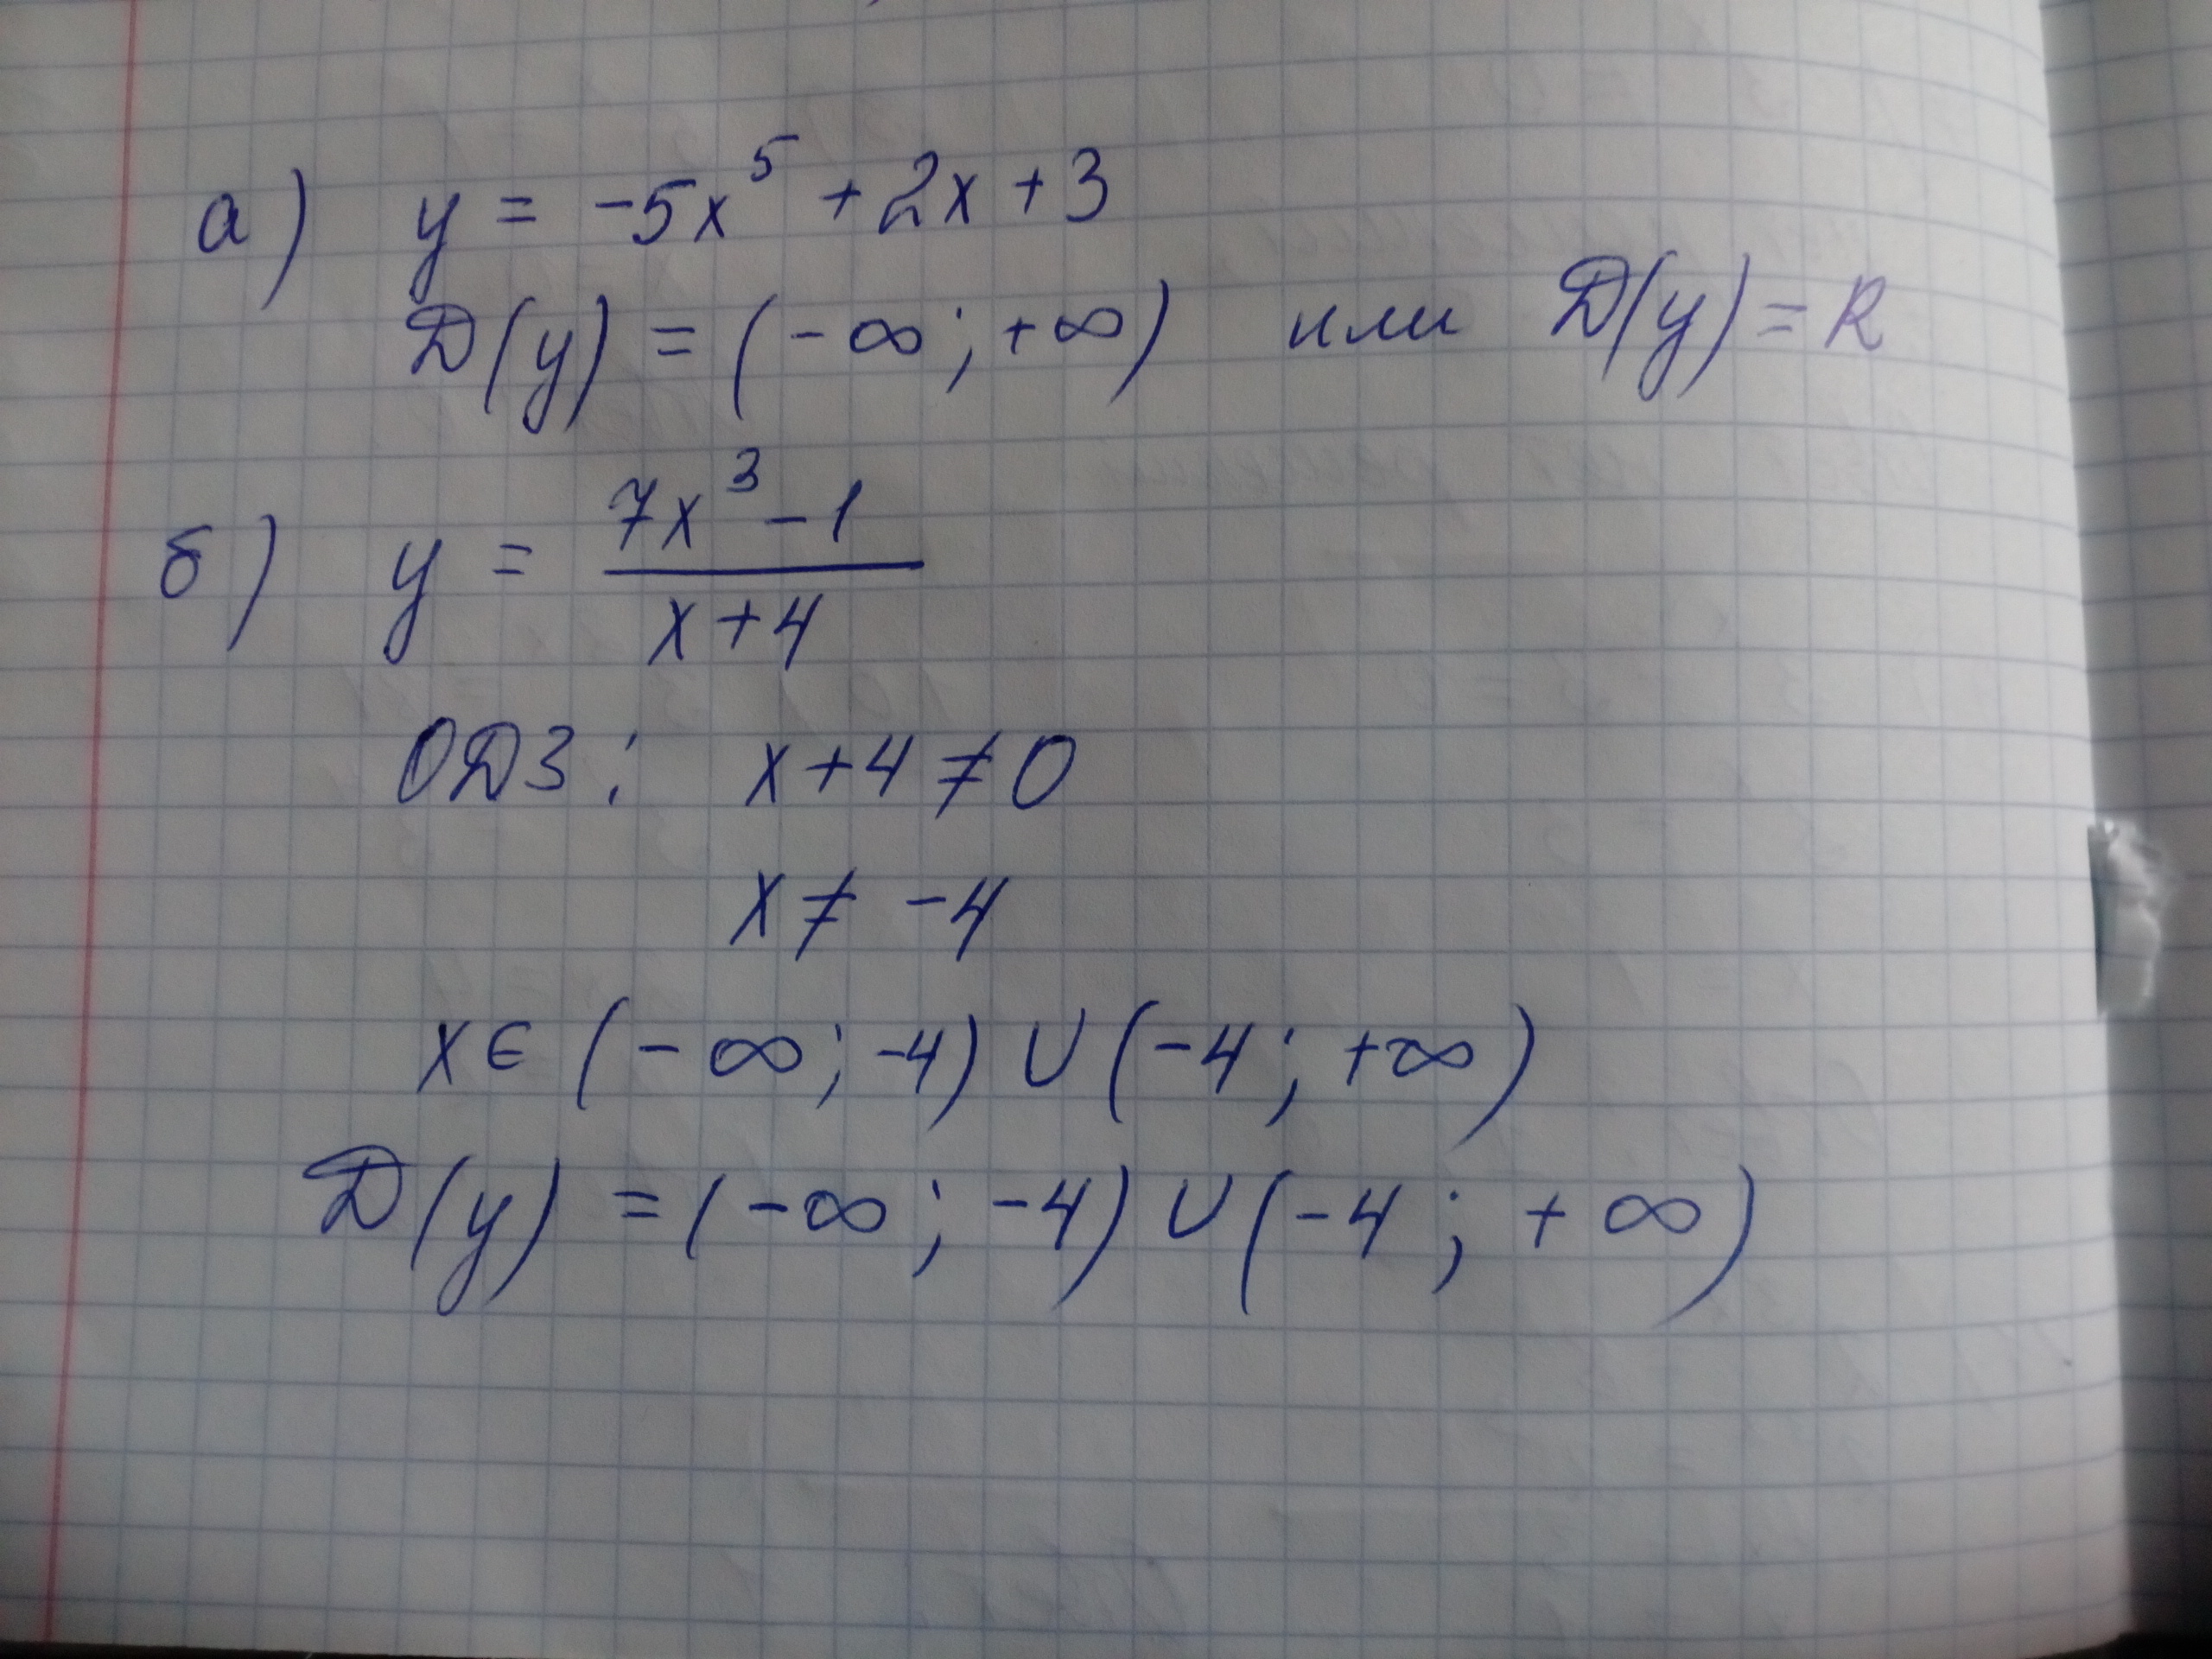 а) y = -5x⁵ + 2x + 3
D(y) = (-∞; +∞) или D(y) = R
б) y = (7x³ - 1)/(x + 4)
ОДЗ: x + 4 ≠ 0
x ≠ -4
x ∈ (-∞; -4) ∪ (-4; +∞)
D(y) = (-∞; -4) ∪ (-4; +∞)